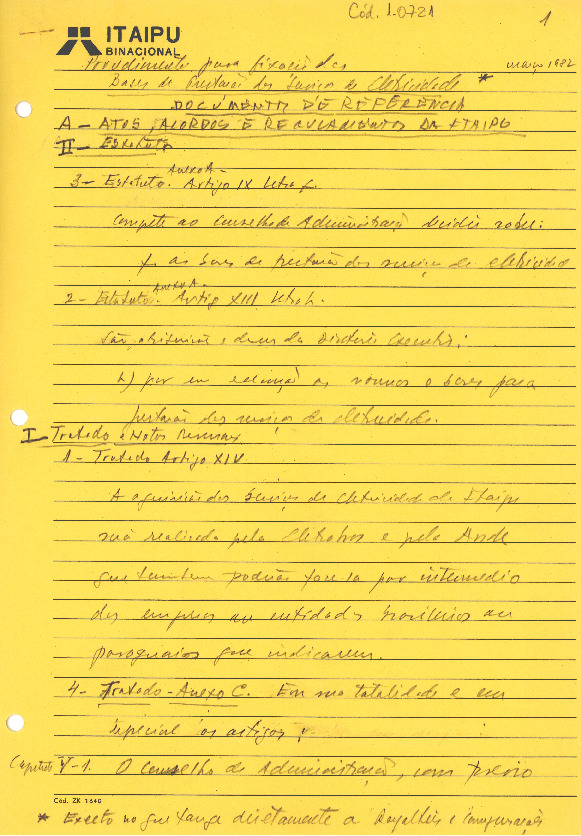 Cód. 1-0721
1
ITAIPU
BINACIONAL
Procedimento para fixação das março 1982
Bases de Prestação dos Serviços de Eletricidade *
DOCUMENTO DE REFERÊNCIA
A - ATOS, ACORDOS E REGULAMENTO DA ITAIPU
II - Estatuto
3 - Estatuto - Anexo A - Artigo IX letra f.
Compete ao Conselho de Administração decidir sobre:
f. as bases de prestação dos serviços de eletricidade
2 - Estatuto - Anexo A - Artigo XIII letra h.
São atribuições e deveres da Diretoria Executiva:
h) por em execução as normas e bases para
prestação dos serviços de eletricidade.
I - Tratado e Notas Reversais
1 - Tratado Artigo XIV
A aquisição dos serviços de eletricidade de Itaipu
será realizada pela Eletrobras e pela Ande
que também poderão fazê-la por intermédio
das empresas ou entidades brasileiras ou
paraguaias que indicarem.
4 - Tratado - Anexo C. Em sua totalidade e em
especial os artigos:
Capítulo V-1. O Conselho de Administração, com prévio
Cód. ZK 1640
* Exceto no que tange diretamente a Royalties e